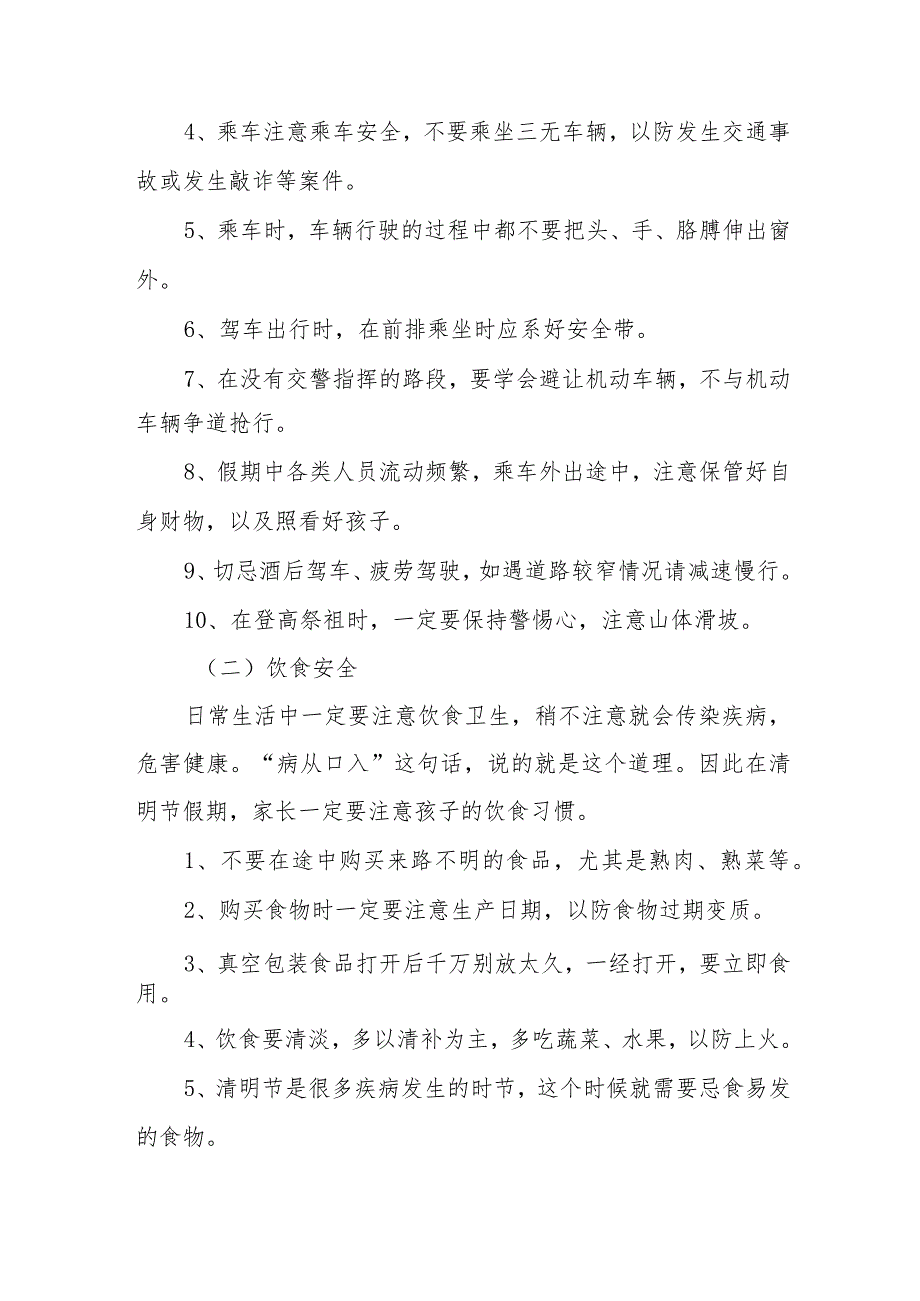 4、乘车注意乘车安全，不要乘坐三无车辆，以防发生交通事
故或发生敲诈等案件。
5、乘车时，车辆行驶的过程中都不要把头、手、胳膊伸出窗
外。
6、驾车出行时，在前排乘坐时应系好安全带。
7、在没有交警指挥的路段，要学会避让机动车辆，不与机动
车辆争道抢行。
8、假期中各类人员流动频繁，乘车外出途中，注意保管好自
身财物，以及照看好孩子。
9、切忌酒后驾车、疲劳驾驶，如遇道路较窄情况请减速慢行。
10、在登高祭祖时，一定要保持警惕心，注意山体滑坡。
（二）饮食安全
日常生活中一定要注意饮食卫生，稍不注意就会传染疾病，
危害健康。“病从口入”这句话，说的就是这个道理。因此在清
明节假期，家长一定要注意孩子的饮食习惯。
1、不要在途中购买来路不明的食品，尤其是熟肉、熟菜等。
2、购买食物时一定要注意生产日期，以防食物过期变质。
3、真空包装食品打开后千万别放太久，一经打开，要立即食
用。
4、饮食要清淡，多以清补为主，多吃蔬菜、水果，以防上火。
5、清明节是很多疾病发生的时节，这个时候就需要忌食易发
的食物。